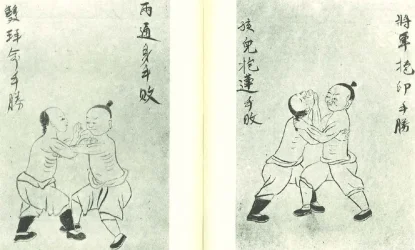 將軍抱印手勝
孩兒抱蓮手敗
兩通身手敗
雙拜手勝